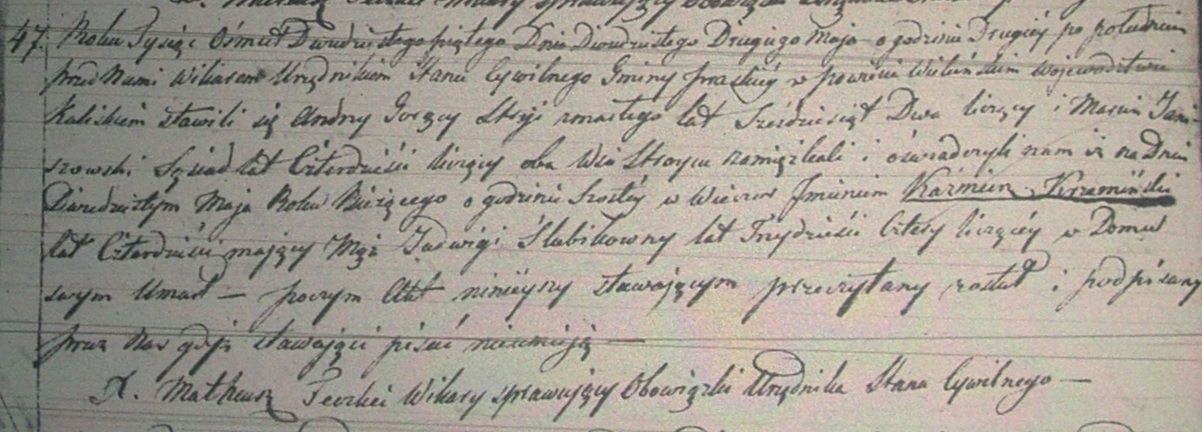 47. Roku Tysiąc Ośmset Dwudziestego piątego Dnia Dwudziestego Drugiego Maja o godzinie Drugiey po południu
przed Nami Wikarem Urzędnikiem Stanu Cywilnego Gminy w powiecie Wieluńskim Wojewodztwie
Kaliskiem stawili się Andrzy Gorący Stryi zmarłego lat Sześdziesiąt Dwa liczący i Marcin Jan-
szowski Sąsiad lat Czterdzieści liczący oba Wsi zamięszkali i oświadczyli nam iż na Dniu
Dwudziestym Maja Roku Bieżącego o godzinie Szostey w Wieczor Jmieniem Kazmierz Krzemiński
lat Czterdzieści mający Mąż Jadwigi Slubikowny lat Trzydzieści Cztery liczącéy w Domu
swym Umarł — poczym Akt ninieyszy stawającym przeczytany został i podpisany
przez Nas gdyż stawający pisać nieumieją —
X. Matheusz Wikary sprawujący Obowiązki Urzędnika Stanu Cywilnego —